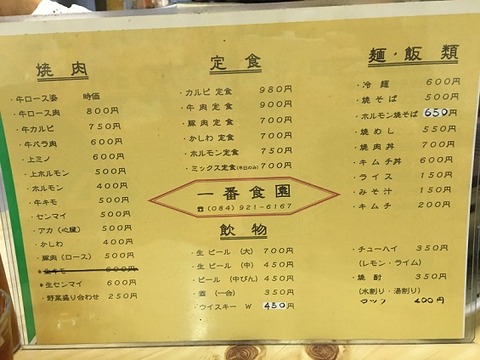 焼肉
・牛ロース芯 時価
・牛ロース肉 800円
・牛カルビ 750円
・牛バラ肉 600円
・上ミノ 600円
・上ホルモン 500円
・ホルモン 400円
・牛キモ 500円
・センマイ 500円
・アカ(心臓) 500円
・かしわ 400円
・豚肉(ロース) 500円
・生キモ 600円
・生センマイ 600円
・野菜盛り合わせ 250円
定食
・カルビ定食 980円
・牛肉定食 900円
・豚肉定食 700円
・かしわ定食 700円
・ホルモン定食 750円
・ミックス定食(平日のみ) 700円
一番食園
☎(084)921-6167
飲物
・生ビール(大) 700円
・生ビール(中) 450円
・ビール(中びん) 450円
・酒(一合) 350円
・ウイスキー W 450円
麺・飯類
・冷麺 600円
・焼そば 500円
・ホルモン焼そば 650円
・焼めし 550円
・焼肉丼 700円
・キムチ丼 600円
・ライス 150円
・みそ汁 150円
・キムチ 200円
・チューハイ 350円
(レモン・ライム)
・焼酎 350円
(水割り・湯割り)
400円